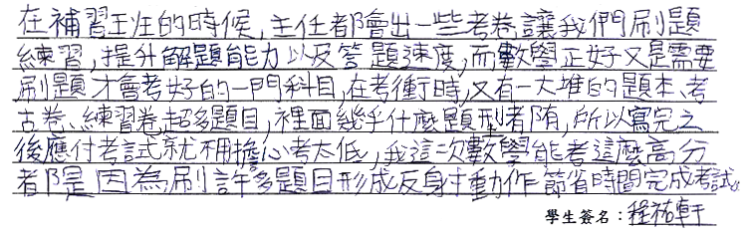 在補習班的時候,主任都會出一些考卷讓我們刷題
練習,提升解題能力以及答題速度,而數學正好又是需要
刷題才會考好的一門科目,在考衝時,又有一大堆的題本、考
古卷、練習卷,超多題目,裡面幾乎什麼題型都有,所以寫完之
後應付考試就不用擔心考太低,我這次數學能考這麼高分
都是因為刷許多題目形成反射動作節省時間完成考試。
學生簽名:程祐軒